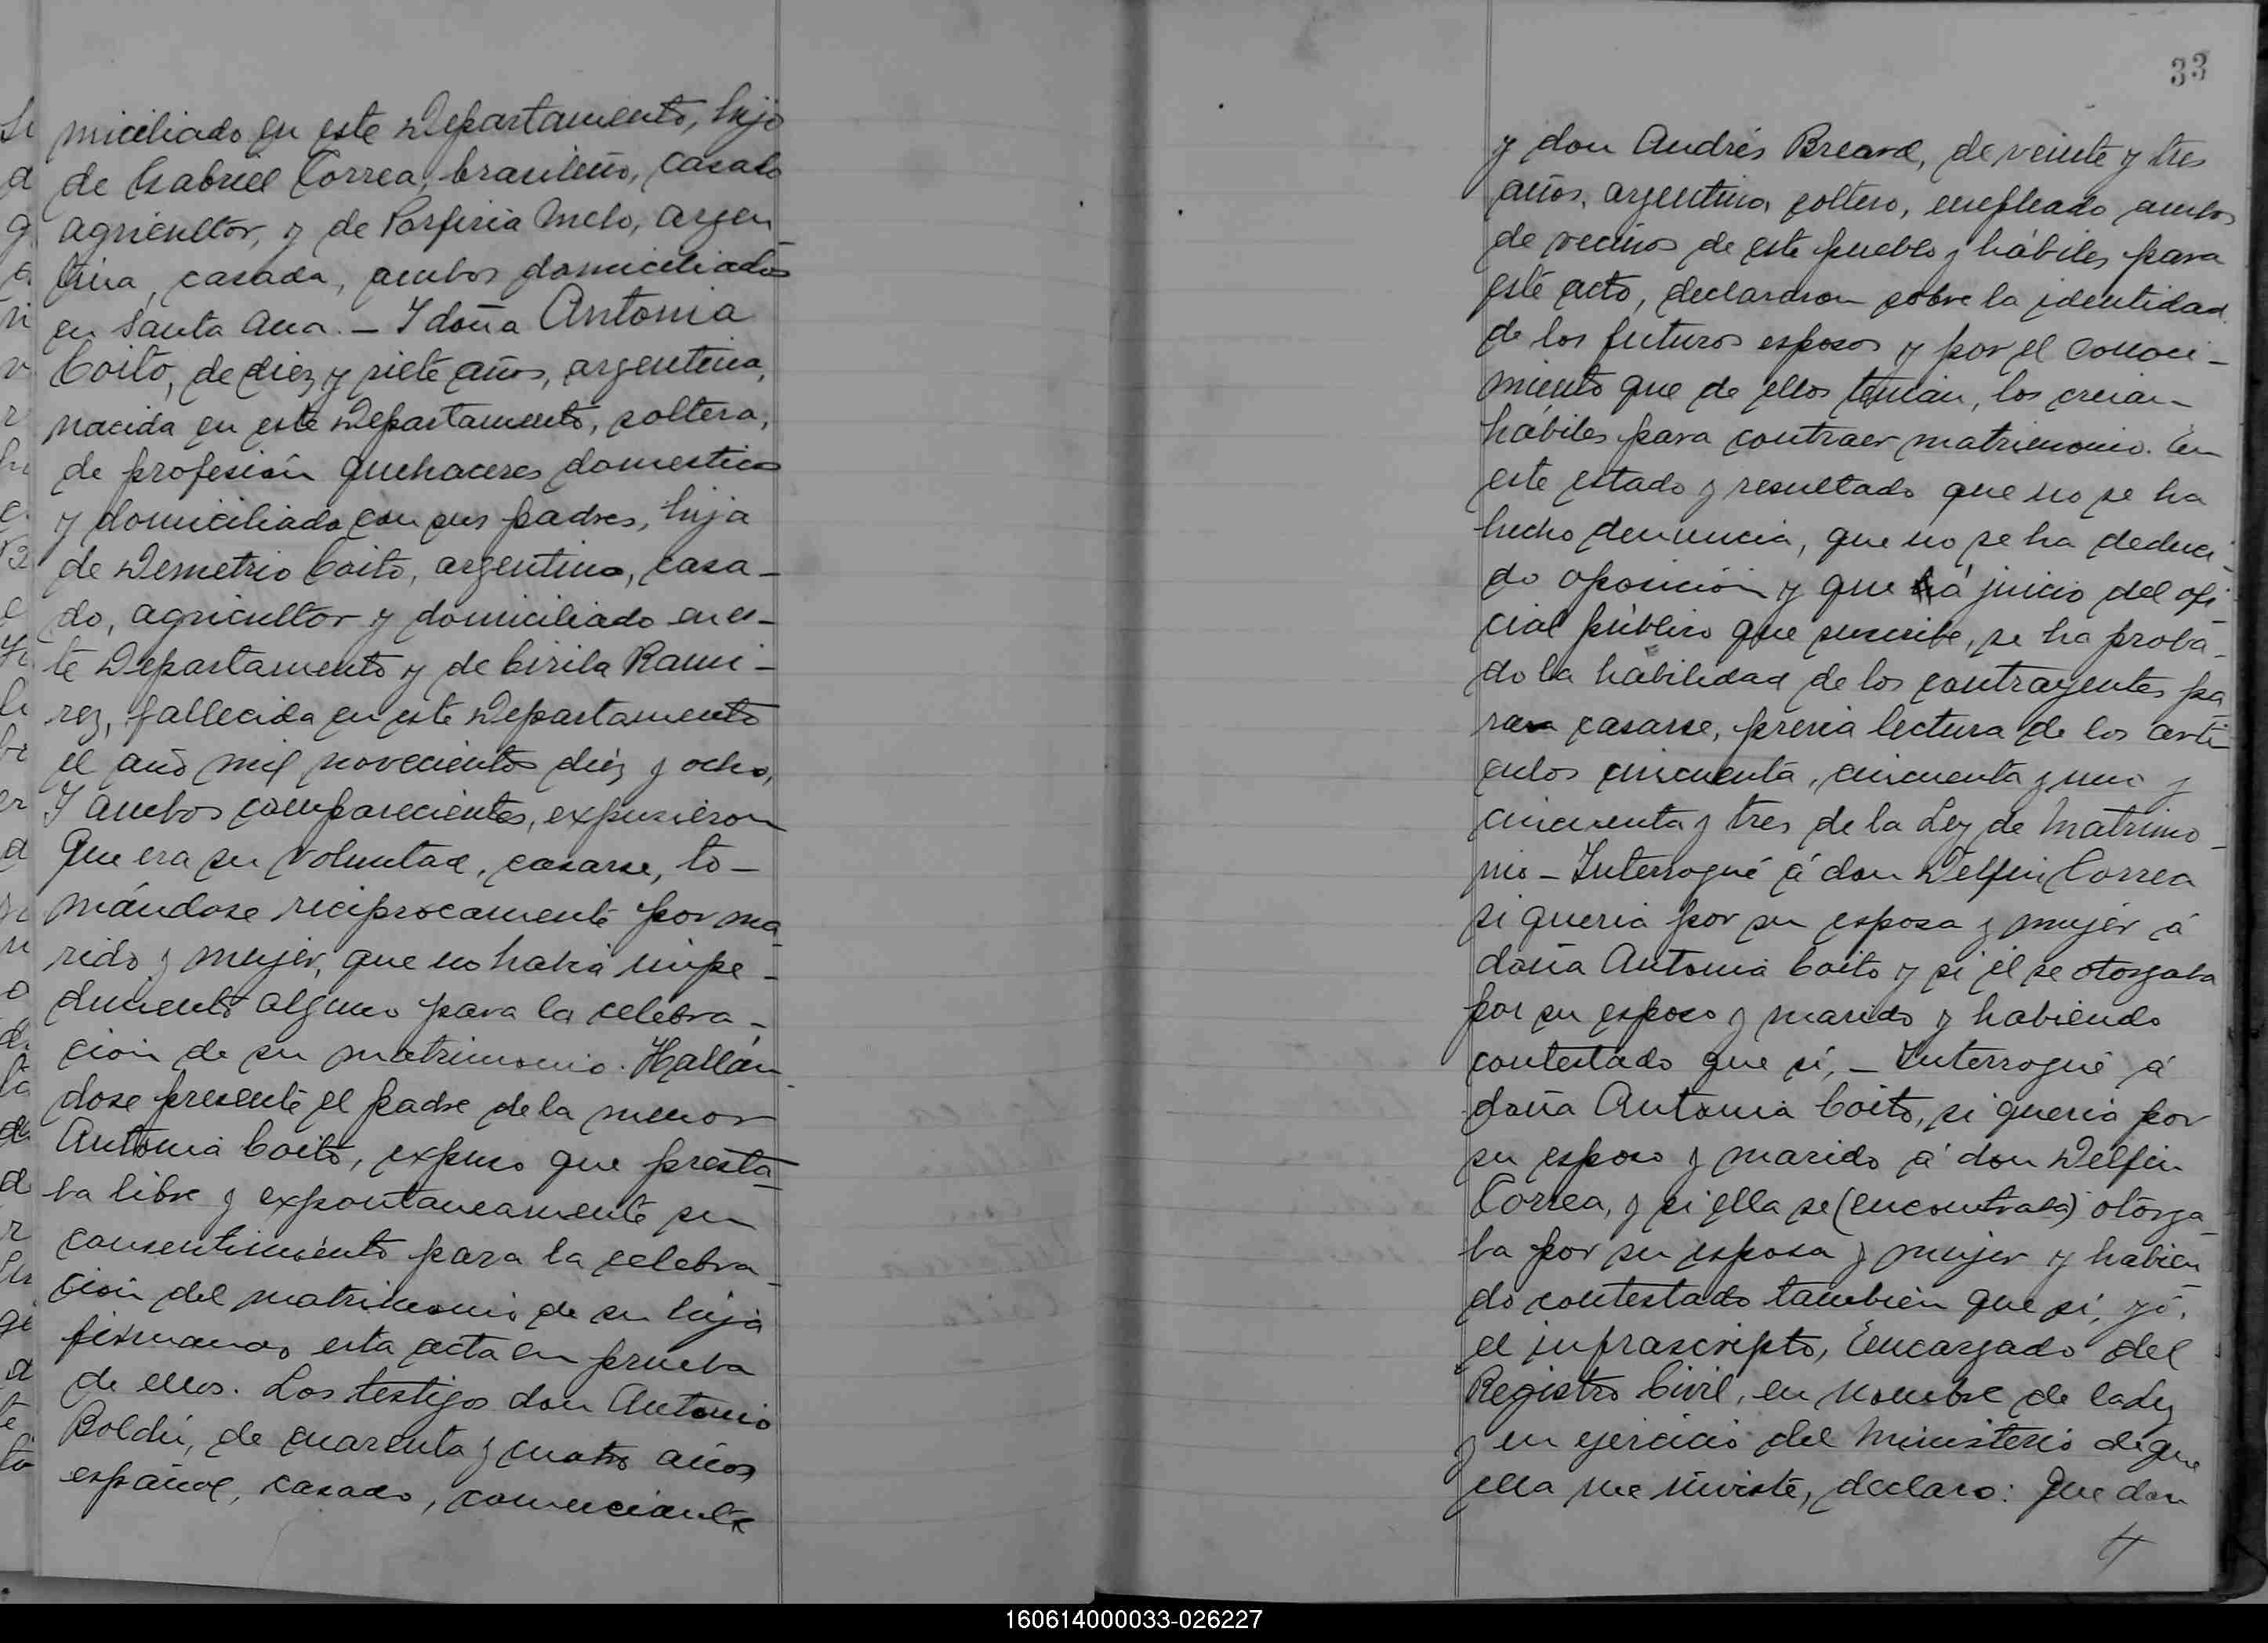 miciliado en este Departamento, hijo
de Gabriel Correa, brasileño, casado
agricultor, y de Porfiria Melo, argen
tina, casada, ambos domiciliados
en Santa Ana. — I doña Antonia
Coito, de diez y siete años, argentina,
nacida en este Departamento, soltera,
de profesión quehaceres domesticos
y domiciliada con sus padres, hija
de Demetrio Coito, argentino, casa-
do, agricultor y domiciliado en es-
te Departamento y de Cirila Rami-
rez, fallecida en este Departamento
el año mil novecientos diéz y ocho,
I ambos comparecientes, expusieron
Que era su voluntad, casarse, to-
mándose reciprocamente por ma
rido y mujer, que no habia impe-
dimento alguno para la celebra-
ción de su matrimonio. Hallán
dose presente el padre de la menor
Antonia Coito, expuso que presta
ba libre y expontaneamente su
consentimiento para la celebra
ción del matrimonio de su hija
firmamos esta acta en prueba
de ellos. Los testigos don Antonio
Boldú, de cuarenta y cuatro años
español, casado, comerciante
33
y don Andrés Breard, de veinte y tres
años, argentino, soltero, empleado ambos
de vecinos de este pueblo y hábiles para
este acto, declararon sobre la identidad
de los futuros esposos y por el conoci-
miento que de ellos tenian, los creian
hábiles para contraer matrimonio. En
este estado y resultado que no se ha
hecho denuncia, que no se ha deduci
do oposición y que á juicio del ofi
cial público que suscribe, se ha proba-
do la habilidad de los contrayentes pa
ra casarse, previa lectura de los arti
culos cincuenta, cincuenta y uno y
cincuenta y tres de la Ley de Matrimo-
nio — Interrogué á don Delfin Correa
si queria por su esposa y mujer á
doña Antonia Coito y si él se otorgaba
por su esposo y marido y habiendo
contestado que sí, — Interrogué á
doña Antonia Coito, si queria por
su esposo y marido á don Delfin
Correa, y si ella se (encontraba) otorga
ba por su esposa y mujer y habien
do contestado también que sí, yó,
el infrascripto, Encargado del
Registro Civil, en nombre de la Ley
y en ejercicio del Ministerio de que
ella me inviste, declaro: Que don
160614000033-026227